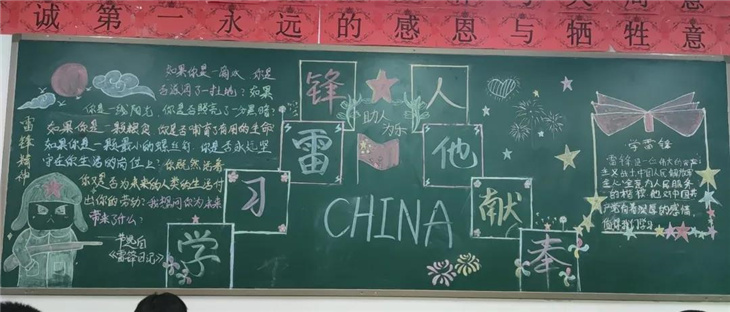 诚第一永远的感恩与牺牲意
如果你是一滴水,你是
否滋润了一寸土地?如果
你是一线阳光,你是否照亮了一分黑暗?
如果你是一颗粮食,你是否哺育了有用的生命
如果你是一颗最小的螺丝钉,你是否永远坚
守在你生活的岗位上?你既然活着
你又是否为未来的人类的生活付
出你的劳动?我想问你为未来
带来了什么?
节选自
《雷锋日记》
雷锋精神
学习雷锋
助人
为乐
CHINA
奉献他人
学雷锋
雷锋是一位伟大的共产
主义战士中国人民解放军
全心全意为人民服务
的楷模,他对中国共
产党有着深厚的感情,
值得我们学习